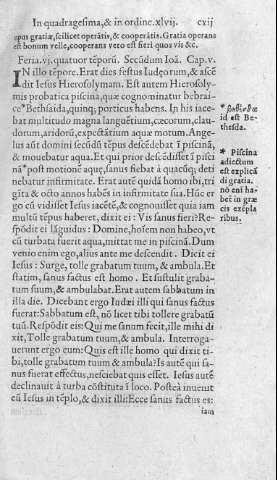 In quadragesima, & in ordine. xlvij. cxij
opus gratiæ, scilicet operātis, & cooperātis. Gratia operans
est bonum velle, cooperans vero est fieri quos vis &c.
Feria. vj. quatuor tēporū. Secūdum Ioā. Cap. v.
IN illo tēpore. Erat dies festus Iudęorum, & ascē
dit Iesus Hierosolymam. Est autem Hierosoly
mis probatica piscina, quæ cognominatur hebrai-
ce * Bethsaida, quinq; porticus habens. In his iace-
bat multitudo magna languētium, cæcorum, clau-
dorum, aridorū, expectātium aquæ motum. Ange-
lus autē domini secūdū tēpus descēdebat ī piscinā,
& mouebatur aqua. Et qui prior descēdisset ī pisci
nā * post motionē aquę, sanus fiebat à quacūq; deti
nebatur infirmitate. Erat autē quidā homo ibi, tri
gīta & octo annos habēs in infirmitate sua. Hūc er
go cū vidisset Iesus iacētē, & cognouisset quia iam
multū tēpus haberet, dixit ei: Vis sanus fieri? Re-
spōdit ei lāguidus: Domine, hoīem non habeo, vt
cū turbata fuerit aqua, mittat me in piscinā. Dum
venio enim ego, alius ante me descendit. Dicit ei
Iesus: Surge, tolle grabatum tuum, & ambula. Et
statim, sanus factus est homo. Et sustulit graba-
tum suum, & ambulabat. Erat autem sabbatum in
illa die. Dicebant ergo Iudæi illi qui sanus factus
fuerat: Sabbatum est, nō licet tibi tollere grabatū
tuū. Respōdit eis: Qui me sanum fecit, ille mihi di
xit, Tolle grabatum tuum, & ambula. Interroga-
uerunt ergo eum: Quis est ille homo qui dixit ti-
bi, tolle grabatum tuum & ambula? Is autē qui sa-
nus fuerat effectus, nesciebat quis esset. Iesus autē
declinauit à turba cōstituta ī loco. Posteà inuenit
eū Iesus in tēplo, & dixit illi: Ecce sanus factus es:
iam
id est Be-
thesda.
* Piscina
adictum
est explicā
di gratia.
nō enī ha-
bet in græ
cis exēpla
ribus.